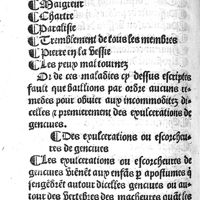 ¶Maigreur
¶Chartre
¶Paralisie
¶Tremblement de tous les membres
¶Pierre en la Vessie
¶Les yeux mal tournez
Or de ces maladies cy dessus escriptes
fault que baillions par ordre aucuns re-
medes pour obuier aux incommoditez di-
celles & premierement des exulcerations de
genciues.
¶Des exulcerations ou escorchau-
res de genciues
¶Les exulcerations ou escorcheures de
genciues viēnēt aux enfās p apostumes q̄
sengēdrēt autour dicelles genciues ou au-
tour des vertebres des macheures quāt les